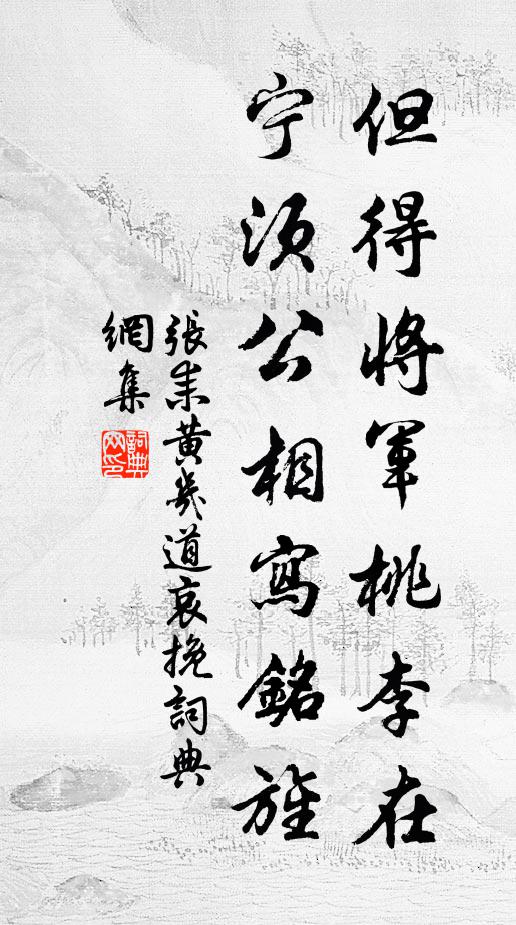 但得將軍桃李在
宁須公相寫銘旌
張耒黄幾道哀挽詞典
網集
詞典網印